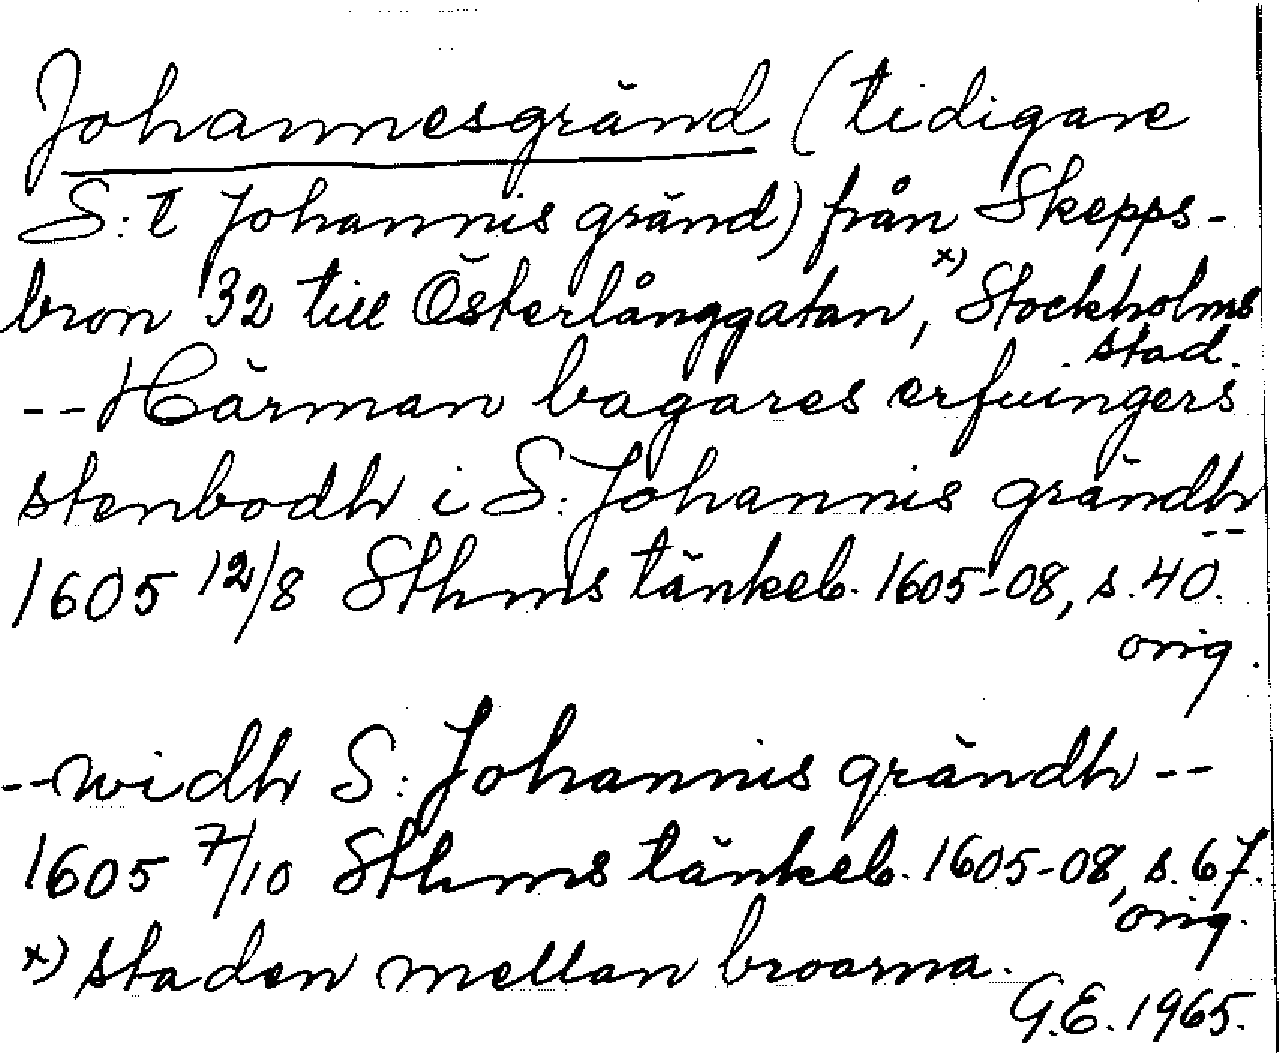 Johannesgränd (tidigare
S:t Johannis gränd) från Skepps-
bron 32 till Österlånggatan, x) Stockholms
stad.
--Härman bagares erfuingers
stenbodh i S. Johannis grändh
--
1605 12/8 Sthms tänkeb. 1605-08, s. 40.
orig.
--widh S: Johannis grändh--
1605 7/10 Sthms tänkeb. 1605-08, s. 67.
orig.
x) staden mellan broarna.
G.E. 1965.